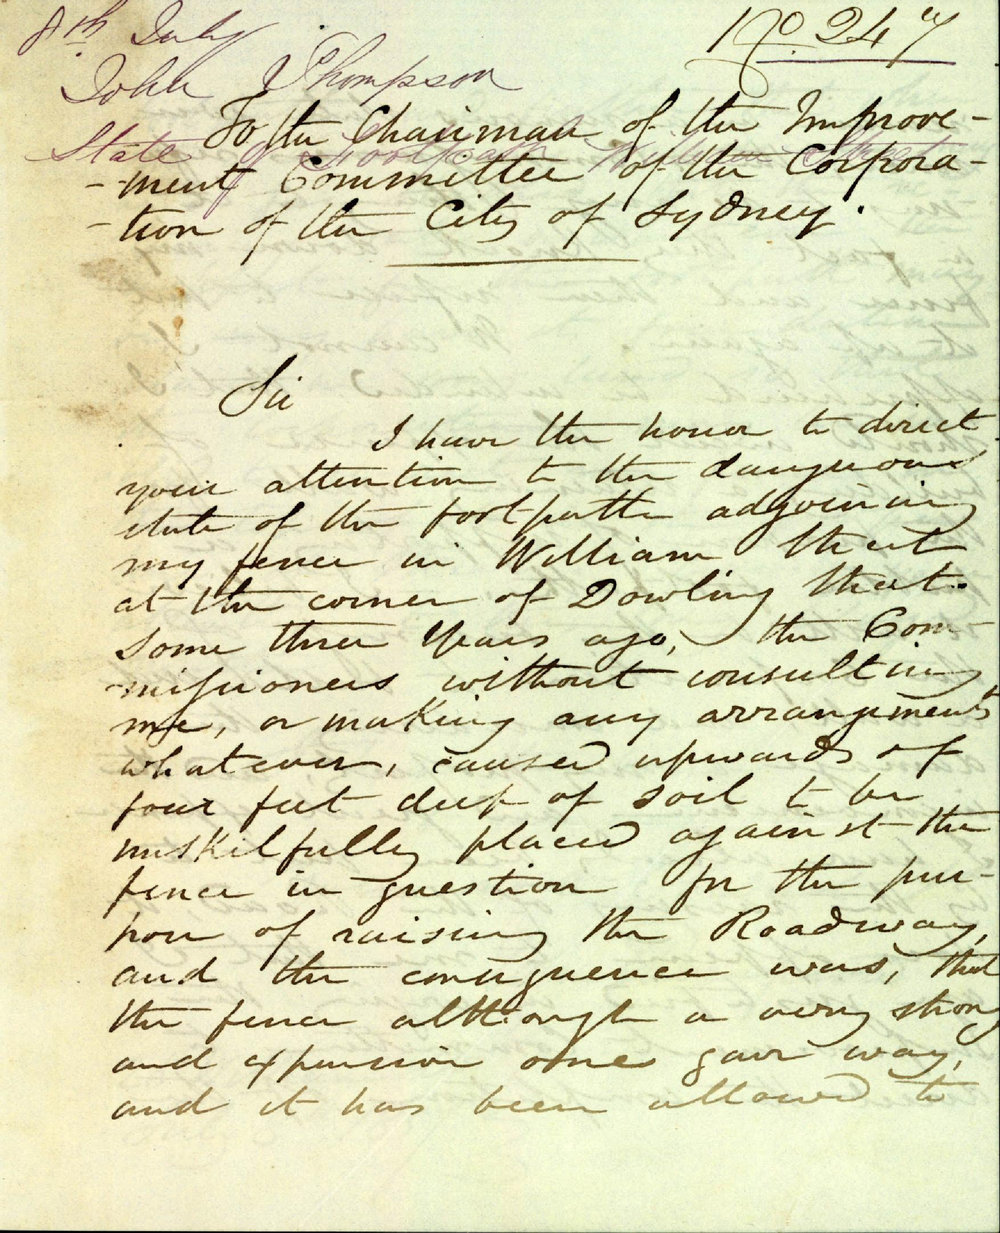 8th July
No. 247
John Thompson
State of Footpath William Street
To the Chairman of the Improve-
-ment Committee of the Corpora-
-tion of the City of Sydney.
Sir
I have the honor to direct
your attention to the dangerous
state of the footpath adjoining
my fence in William Street
at the corner of Dowling Street.
Some three Years ago, the Com-
missioners without consulting
me, or making any arrangements
whatever, caused upwards of
four feet deep of soil to be
unskilfully placed against the
fence in question for the pur-
pose of raising the Roadway,
and the consequence was, that
the fence although a very strong
and expensive one gave way,
and it has been allowed to